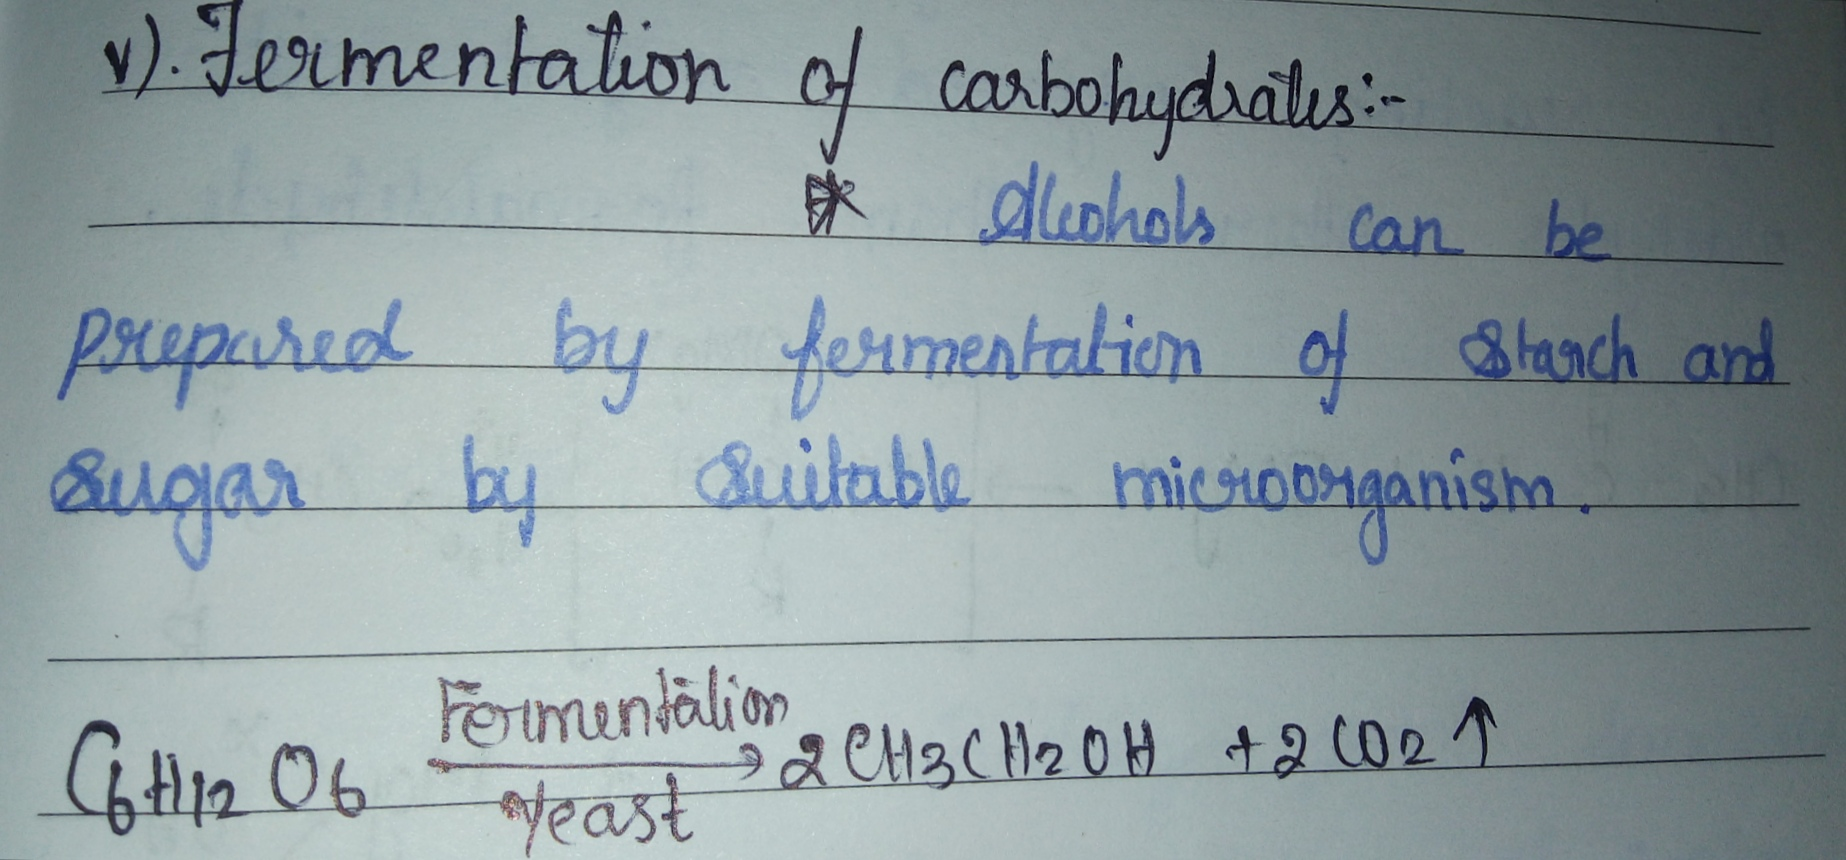 v). Fermentation of carbohydrates:-
* Alcohols can be
prepared by fermentation of starch and
sugar by suitable microorganism.
Fermentation
C6H12O6 → 2CH3CH2OH + 2CO2↑
yeast